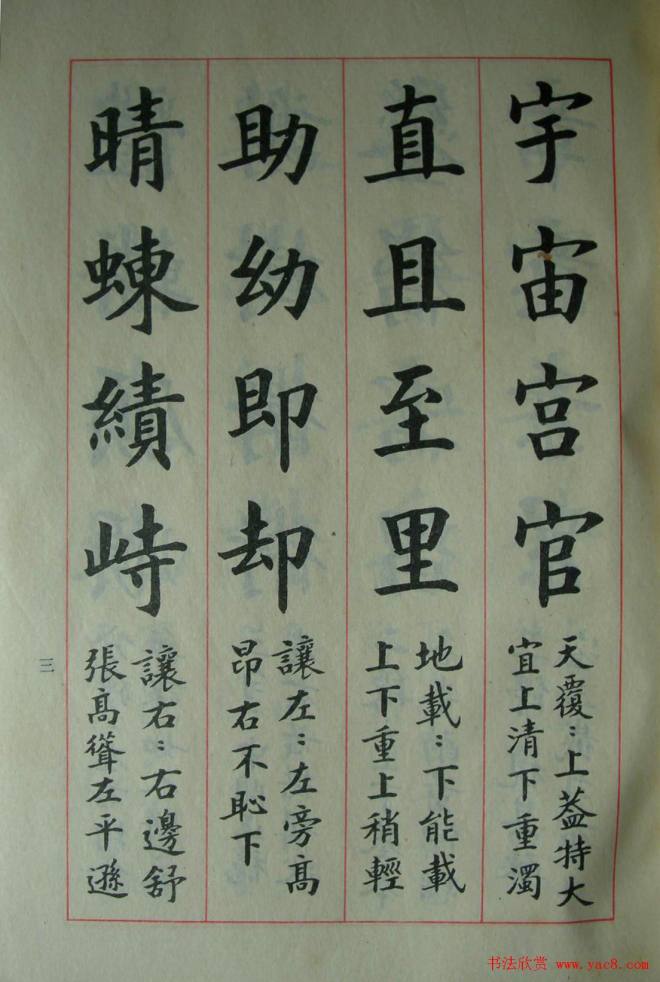 宇宙宫官
天覆：上蓋特大
宜上清下重濁
直且至里
地載：下能載
上下重上稍輕
助幼即却
讓左：左旁高
昂右不恥下
晴蝀績峙
讓右：右邊舒
張高聳左平遜
三
书法欣赏 www.yac8.com